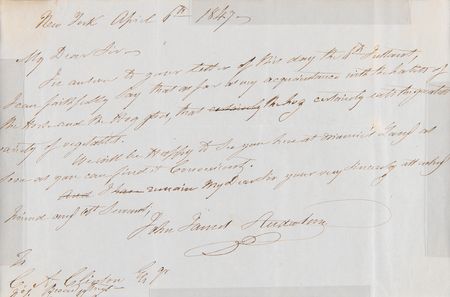 New York April 6th 1847
My Dear Sir
In answer to your letter of this day the 6th Instant,
I can faithfully say that as far as my acquaintance with the habits of
the Horse and the Hog goes, that certainly the hog certainly eats the greatest
variety of vegetables.
We will be Happy to see you here at Minnie's Land as
soon as you can find it Convenient.
And I have remain My Dear Sir your very sincerely attached
friend and Servant,
John James Audubon
To
C. A. Clinton Esqr